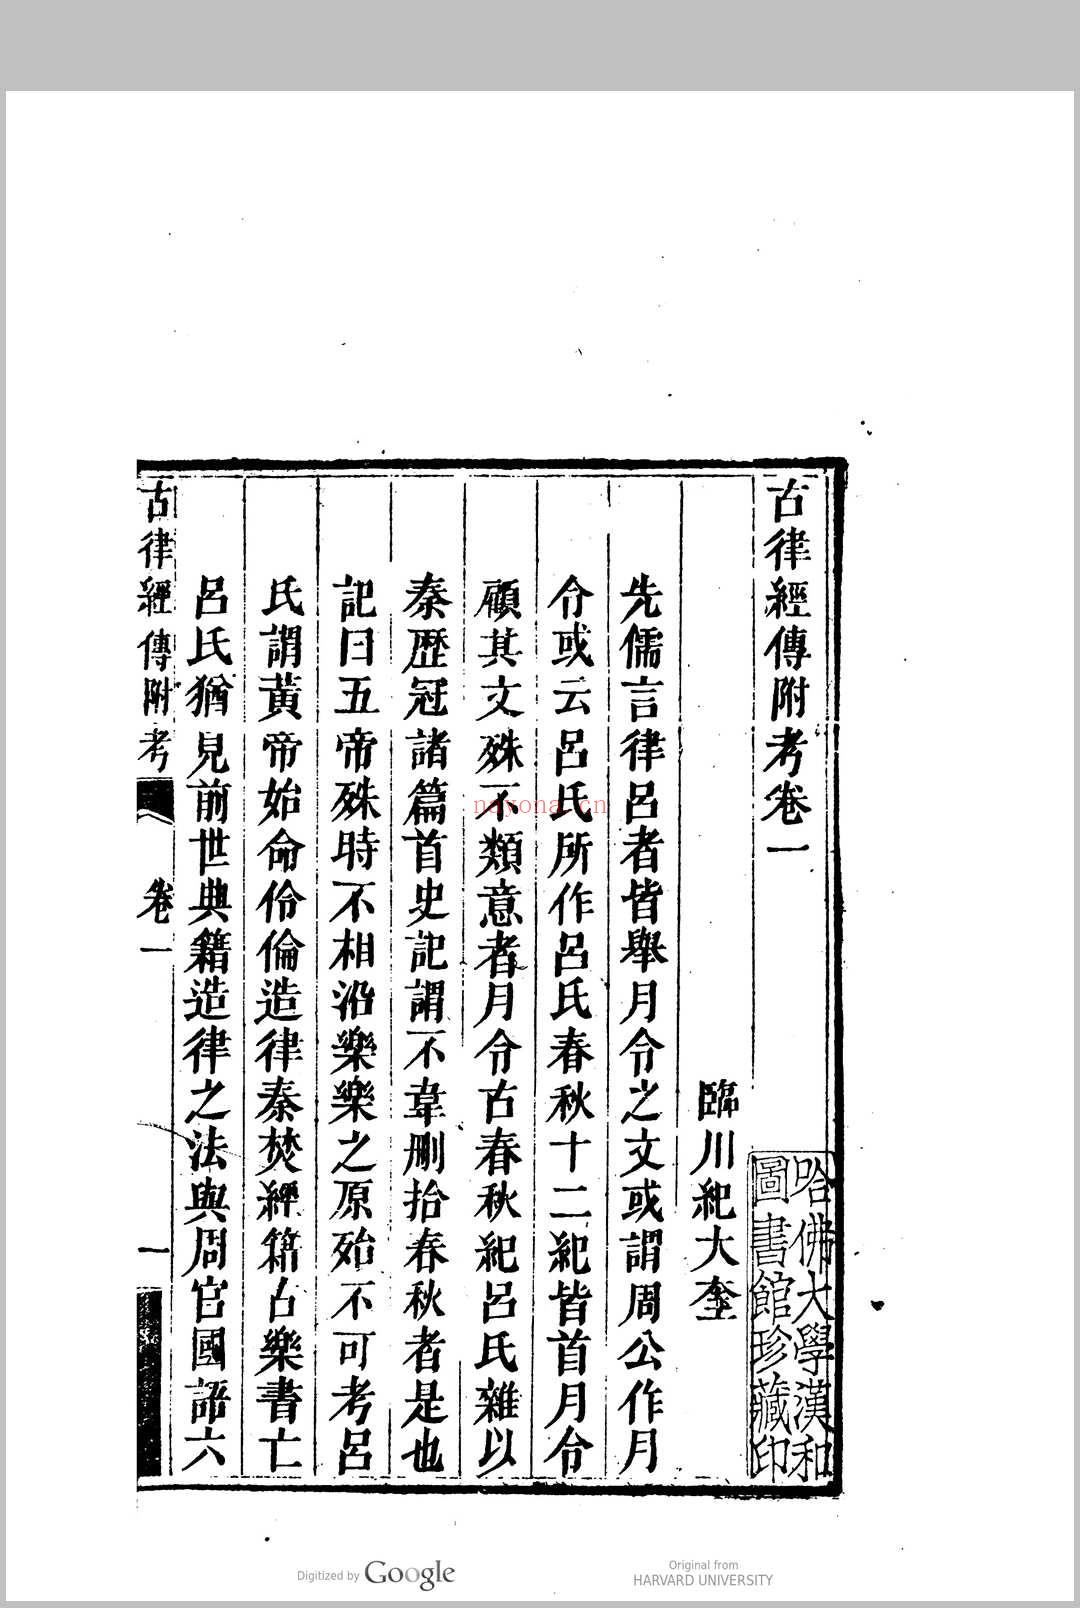 古律經傳附考卷一
臨川紀大奎
先儒言律呂者皆舉月令之文或謂周公作月
令或云呂氏所作呂氏春秋十二紀皆首月令
顧其文殊不類意者月令古春秋紀呂氏雜以
秦歷冠諸篇首史記謂不韋刪拾春秋者是也
記曰五帝殊時不相沿樂樂之原始不可考呂
氏謂黃帝始命伶倫造律秦焚經籍古樂書亡
呂氏猶見前世典籍造律之法與周官國語六
古律經傳附考
卷一
一
哈佛大學漢和
圖書館珍藏印
nayona.cn
Digitized by Google
Original from
HARVARD UNIVERSITY